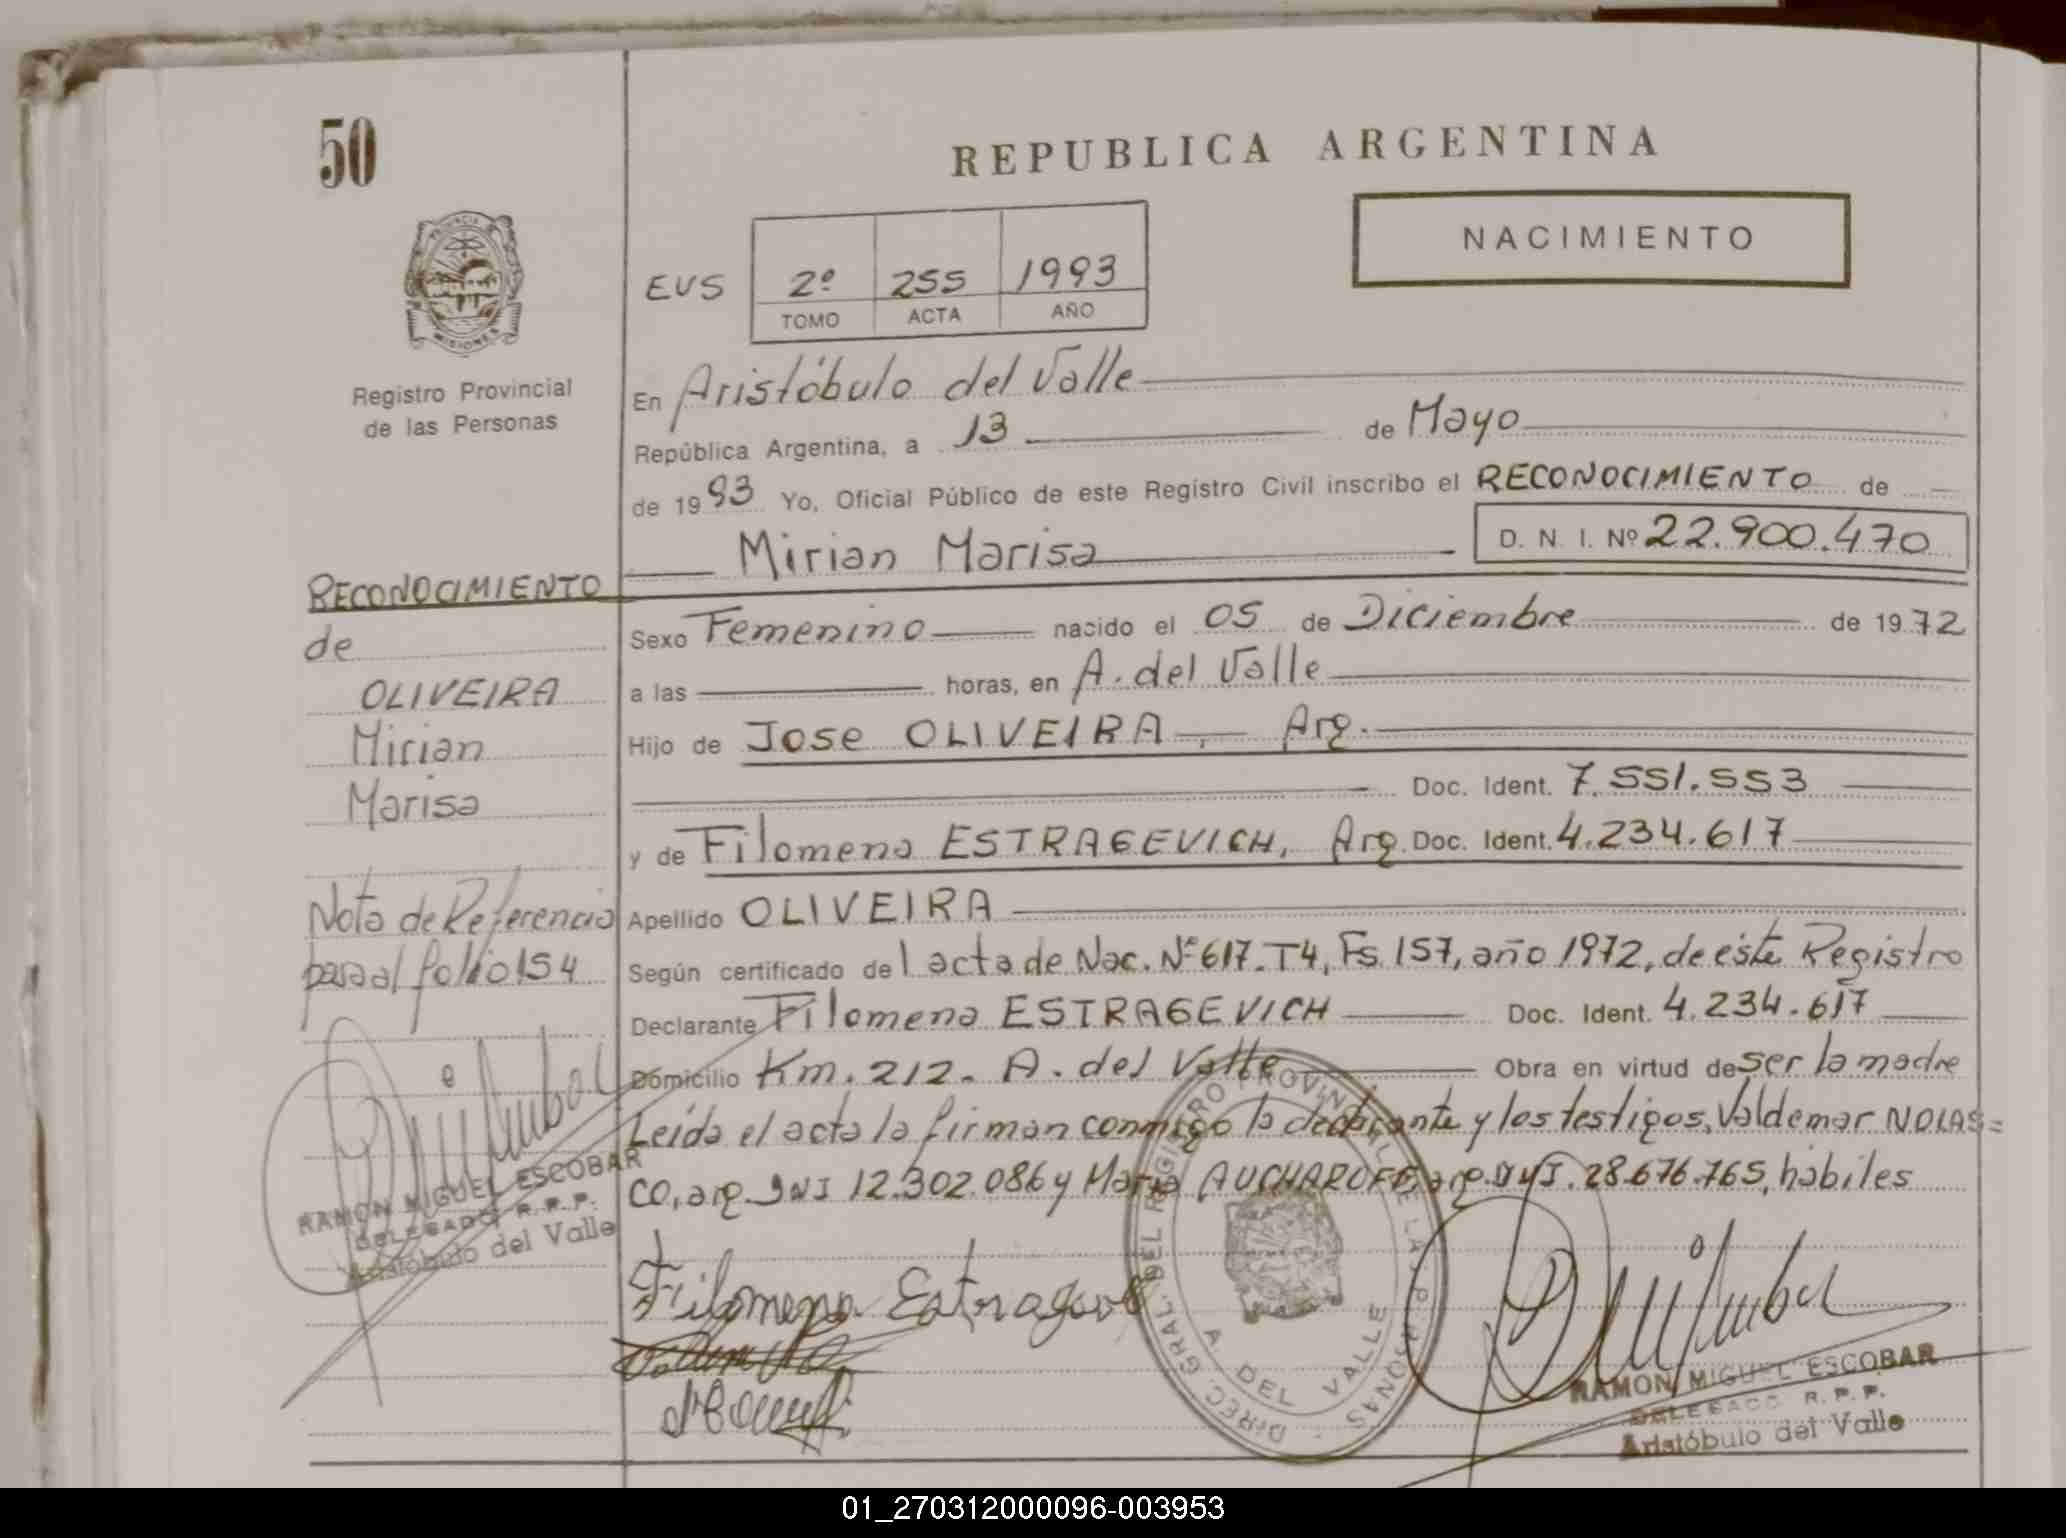 50
REPUBLICA ARGENTINA
NACIMIENTO
PROVINCIA
MISIONES
Registro Provincial
de las Personas
EVS 2º 255 1993
TOMO ACTA AÑO
En Aristóbulo del Valle
República Argentina, a 13 de Mayo
de 1993 Yo, Oficial Público de este Registro Civil inscribo el RECONOCIMIENTO de
Mirian Marisa D. N. I. Nº 22.900.470
RECONOCIMIENTO
de
OLIVEIRA
Mirian
Marisa
Nota de Referencia
para al folio 154
RAMON MIGUEL ESCOBAR
DELEGADO R. P. P.
Aristóbulo del Valle
Sexo Femenino nacido el 05 de Diciembre de 1972
a las horas, en A. del Valle
Hijo de Jose OLIVEIRA, Arg.
Doc. Ident. 7.551.553
y de Filomena ESTRAGEVICH, Arg. Doc. Ident. 4.234.617
Apellido OLIVEIRA
Según certificado del acta de Nac. Nº 617. T4, Fs. 157, año 1972, de éste Registro
Declarante Filomena ESTRAGEVICH Doc. Ident. 4.234.617
Domicilio Km. 212. A. del Valle Obra en virtud de ser la madre
Leída el acta la firman conmigo la declarante y los testigos, Valdemar NOLAS=
CO, arg. DNI 12.302.086 y Maria AUCHAROFF, arg. DNI. 28.676.765, hábiles
Filomena Estragevi
DIREC. GRAL. DEL REGISTRO PROVINCIAL DE LAS PERSONAS
A. DEL VALLE
RAMON MIGUEL ESCOBAR
DELEGADO R. P. P.
Aristóbulo del Valle
01_270312000096-003953